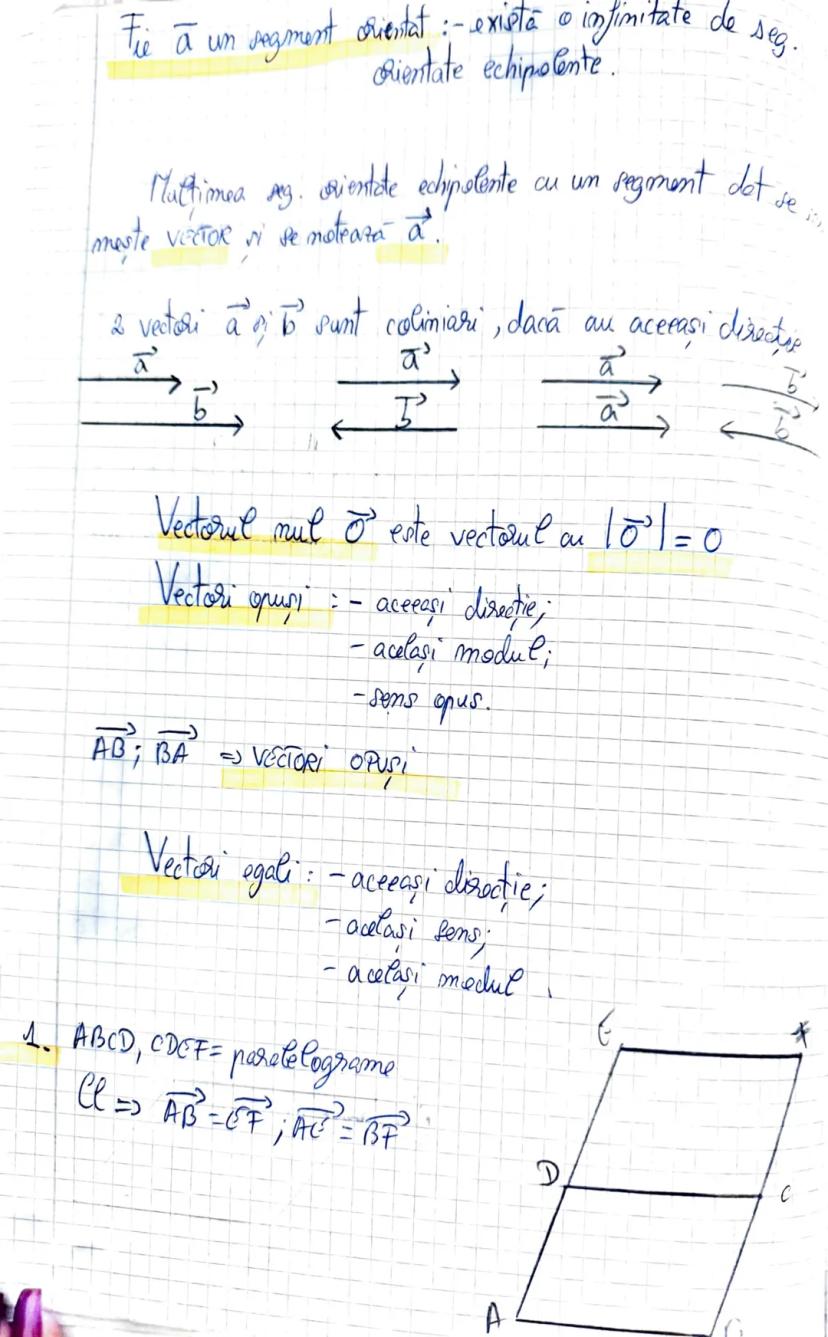 Fie a̅ un segment orientat :- există o infinitate de seg.
orientate echipolente.
Mulțimea seg. orientate echipolente cu un segment dat se
mește VECTOR și se notează a⃗.
2 vectori a⃗ și b⃗ sunt coliniari, dacă au aceeași direcție
a⃗ a⃗ a⃗ b⃗
b⃗ b⃗ a⃗ b⃗
Vectorul nul 0⃗ este vectorul cu |0⃗| = 0
Vectori opuși : - aceeași direcție;
- același modul;
- sens opus.
AB⃗; BA⃗ => VECTORI OPUȘI
Vectori egali : - aceeași direcție;
- același sens;
- același modul.
1. ABCD, CDEF = paralelograme
Cl => AB⃗ = EF⃗; AE⃗ = BF⃗
E
D C
A